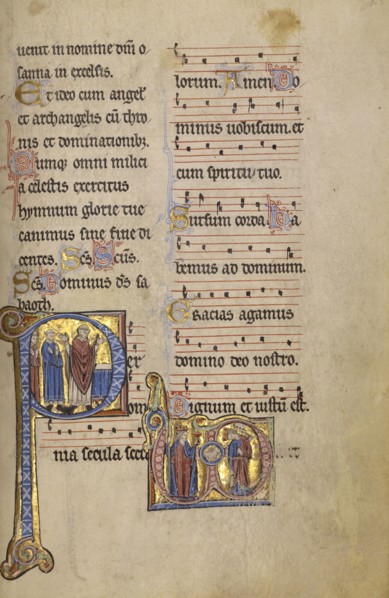 uenit in nomine dm̄i o
sanna in excelsis.
Et ideo cum angel
et archangelis cū thro
nis et dominationibz.
Cumqz omni milici
a celestis exercitus
hymnum glorie tue
canimus sine fine di
centes. Sc̄s. Sc̄us.
Sc̄s. Dominus dS sa
baoth.
Per
om
nia secula secu
lorum. Amen. Do
minus uobiscum. et
cum spiritu tuo.
Sursum corda. Ha
bemus ad dominum.
Gracias agamus
domino deo nostro.
Dignum et iustū est.